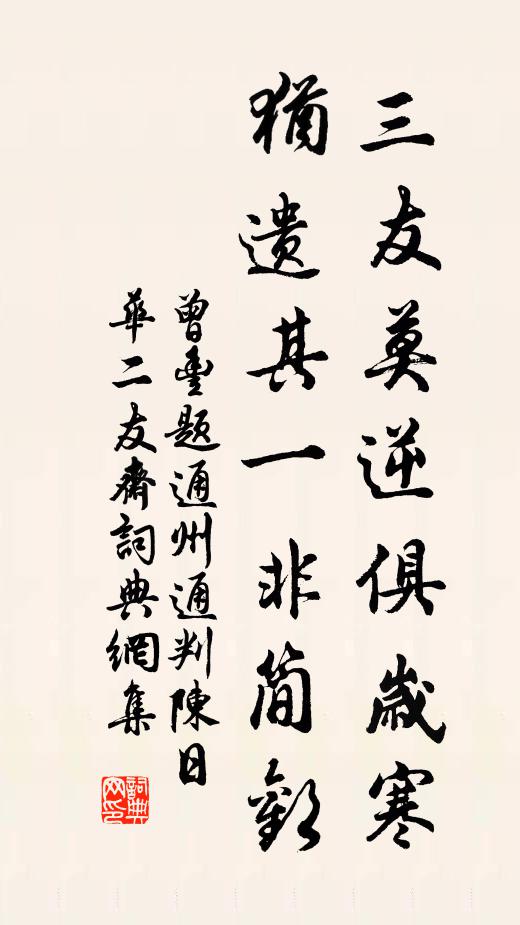 三友莫逆俱歲寒
猶遺其一非簡歡
曾豐題通州通判陳日
華二友齋詞典網集
詞典
网印